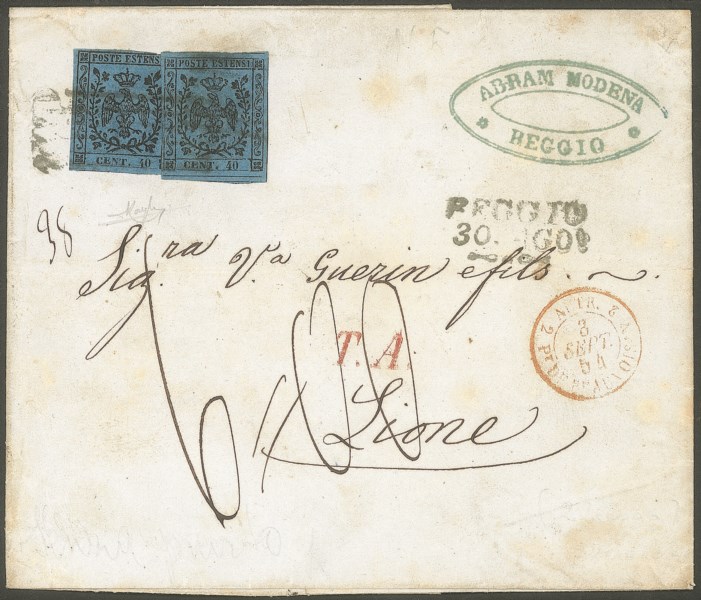 POSTE ESTENSI
CENT. 40
POSTE ESTENSI
CENT. 40
ABRAM MODENA
REGGIO
REGGIO
30. AGO
98
Sig.ra V.a Guerin e fils.
T. A.
Lione
3
SEPT.
54